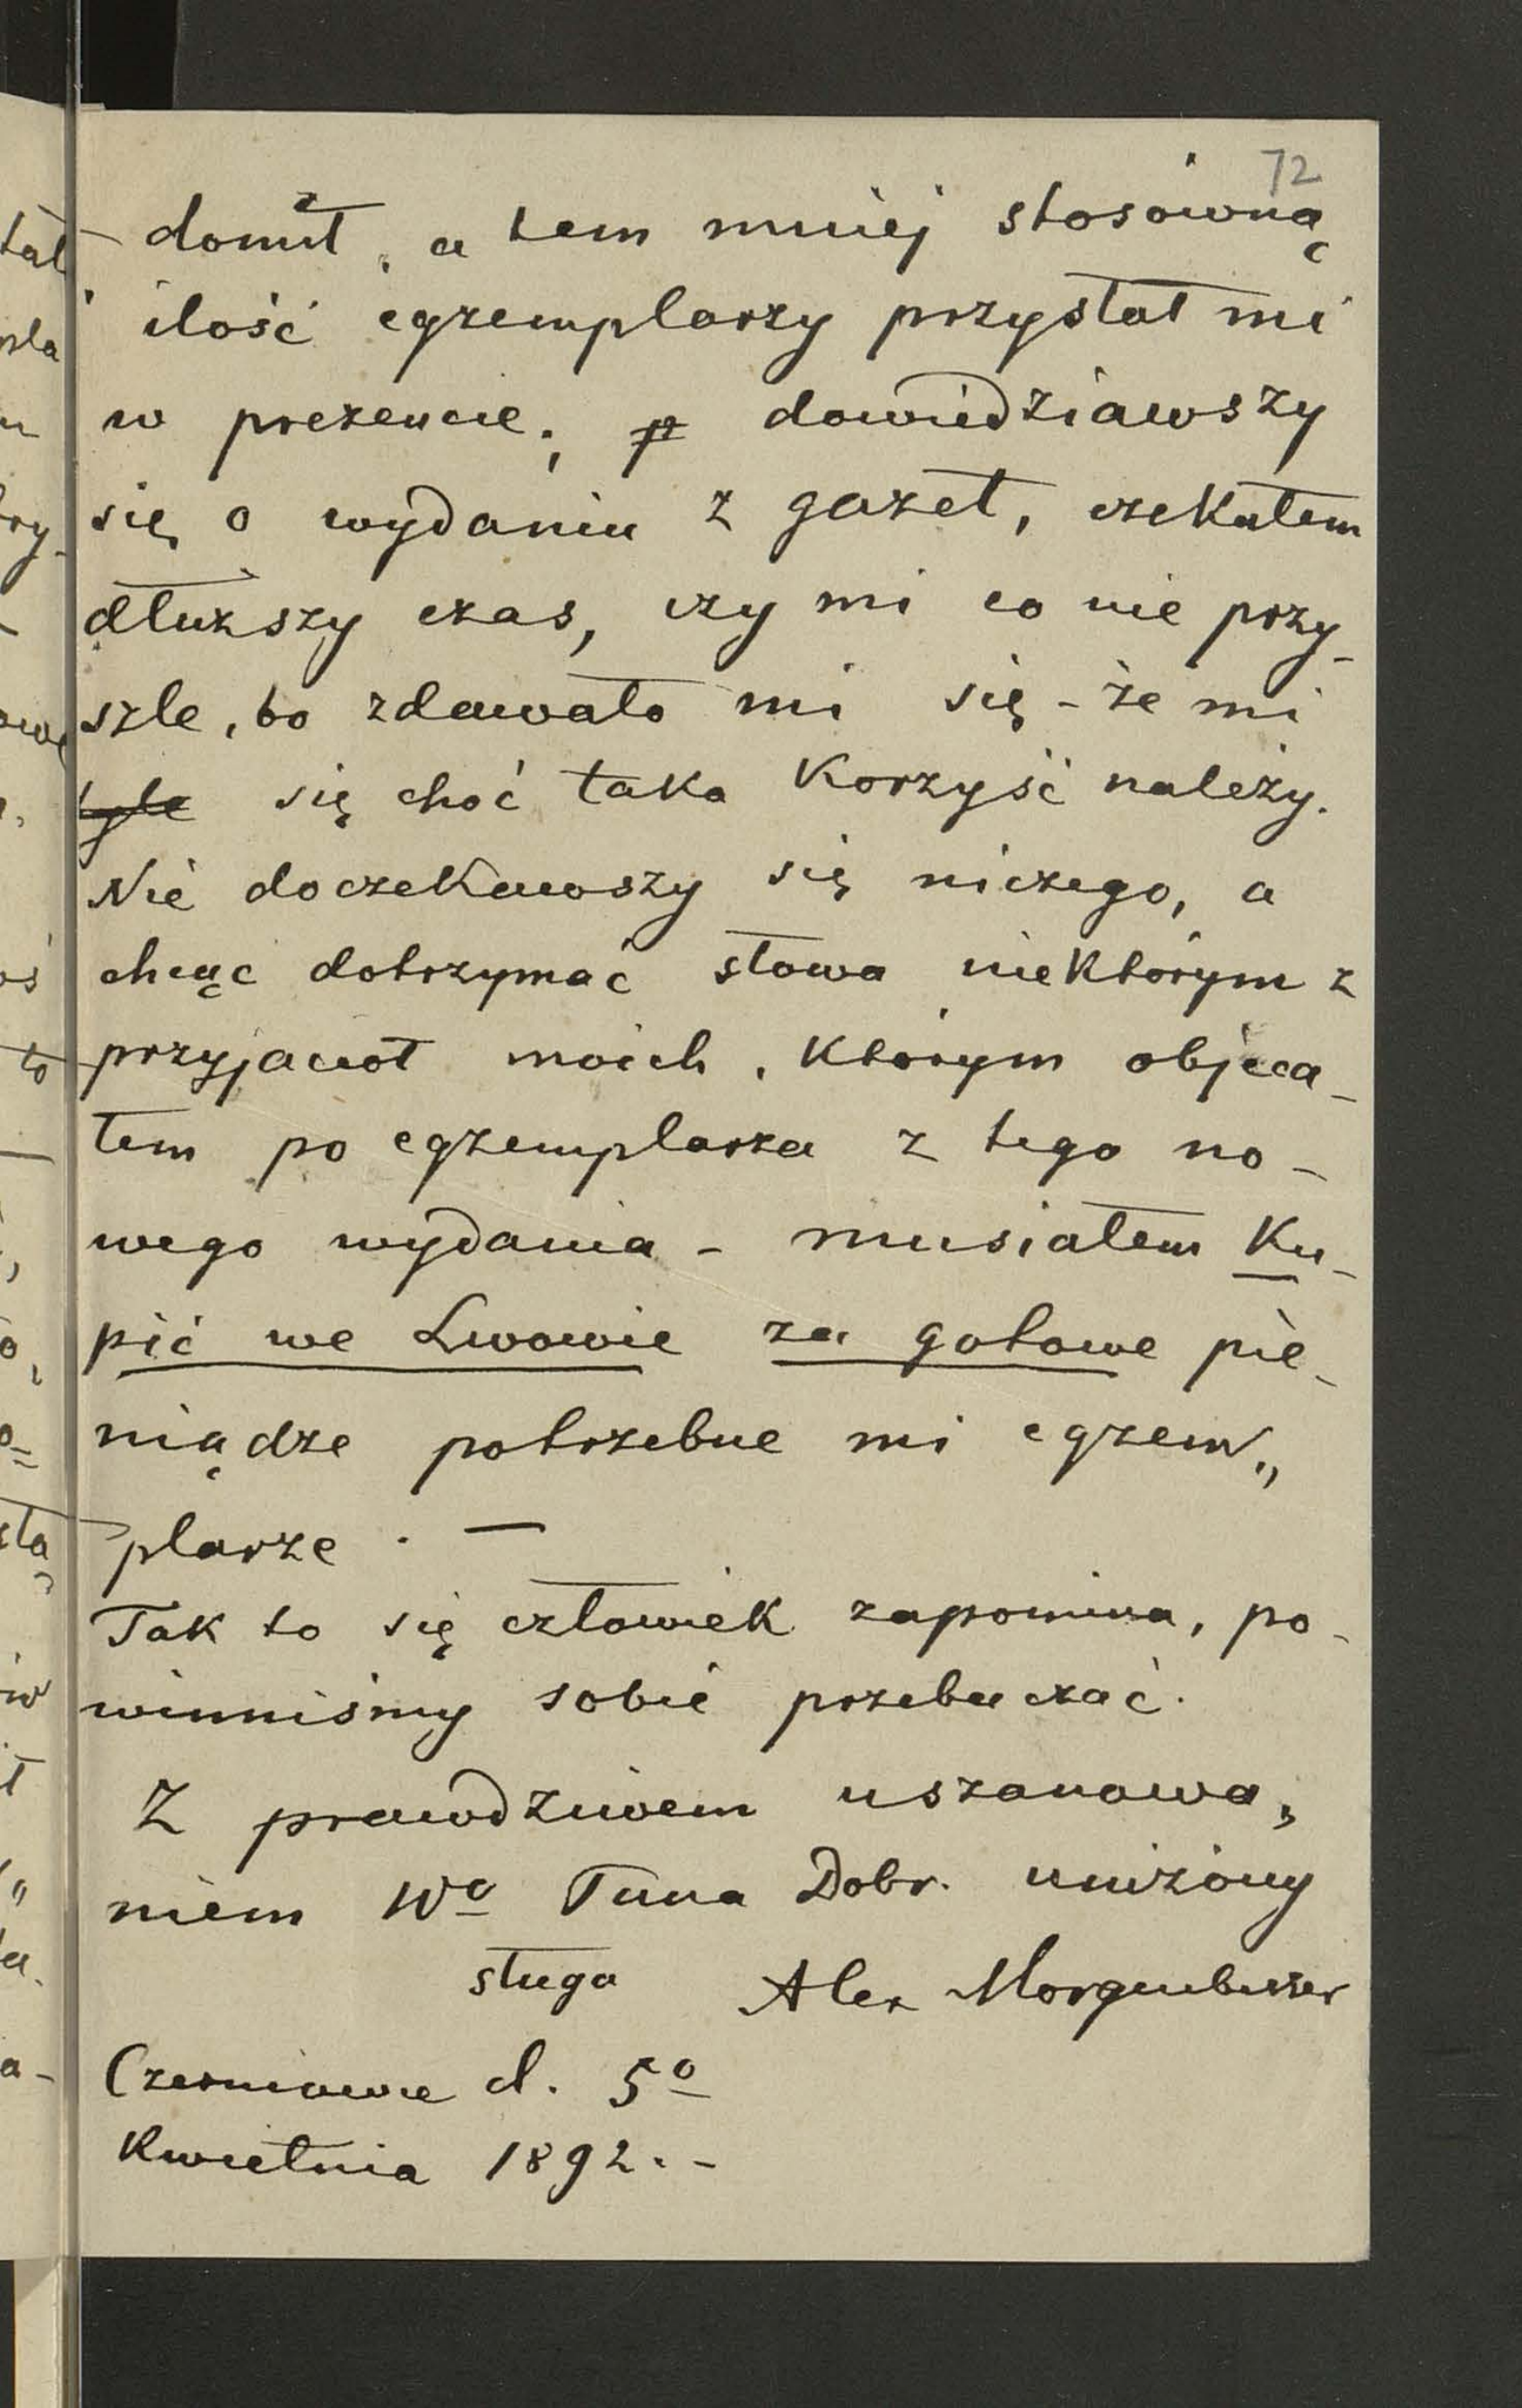 72
domił, a tem mniej stosówną
ilość egzemplarzy przysłał mi
w prezencie; p dowiedziawszy
się o wydaniu z gazet, czekałem
dłuższy czas, czy mi co nie przy-
szle, bo zdawało mi się - że mi
tyle się choć taka korzyść należy.
Nie doczekawszy się niczego, a
chcąc dotrzymać słowa niektórym z
przyjaciół moich, którym objeca-
łem po egzemplarzu z tego no-
wego wydania - musiałem ku-
pić we Lwowie za gotowe pie-
niądze potrzebne mi egzem„
plarze. —
Tak to się człowiek zapomina, po-
winniśmy sobie przebaczać.
Z prawdziwem uszanowa„
niem Wo Pana Dobr. uniżony
sługa Alex Morgenbesser
Czerniowce d. 5o
Kwietnia 1892. -